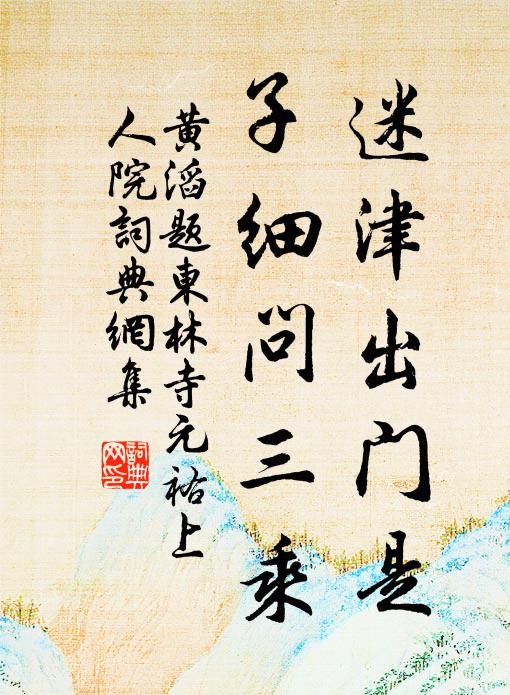 迷津出门是
子细问三乘
黄滔题東林寺元祐上
人院詞典網集
詞典网印